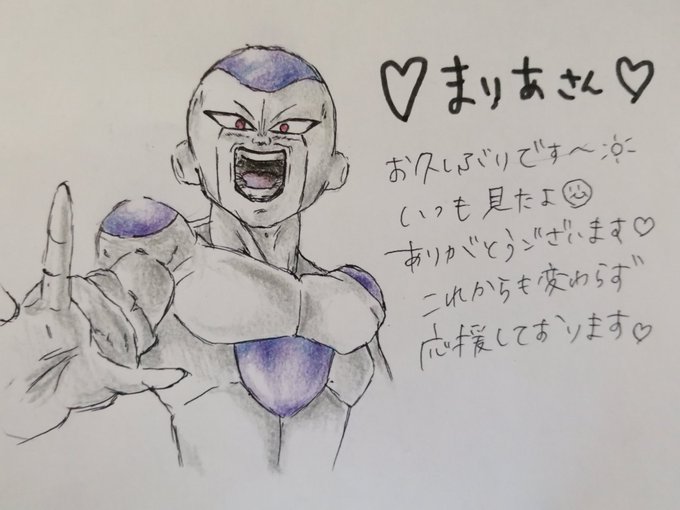 ♡まりあさん♡
お久しぶりです〜☼
いつも見たよ☺
ありがとうございます♡
これからも変わらず
応援しております♡